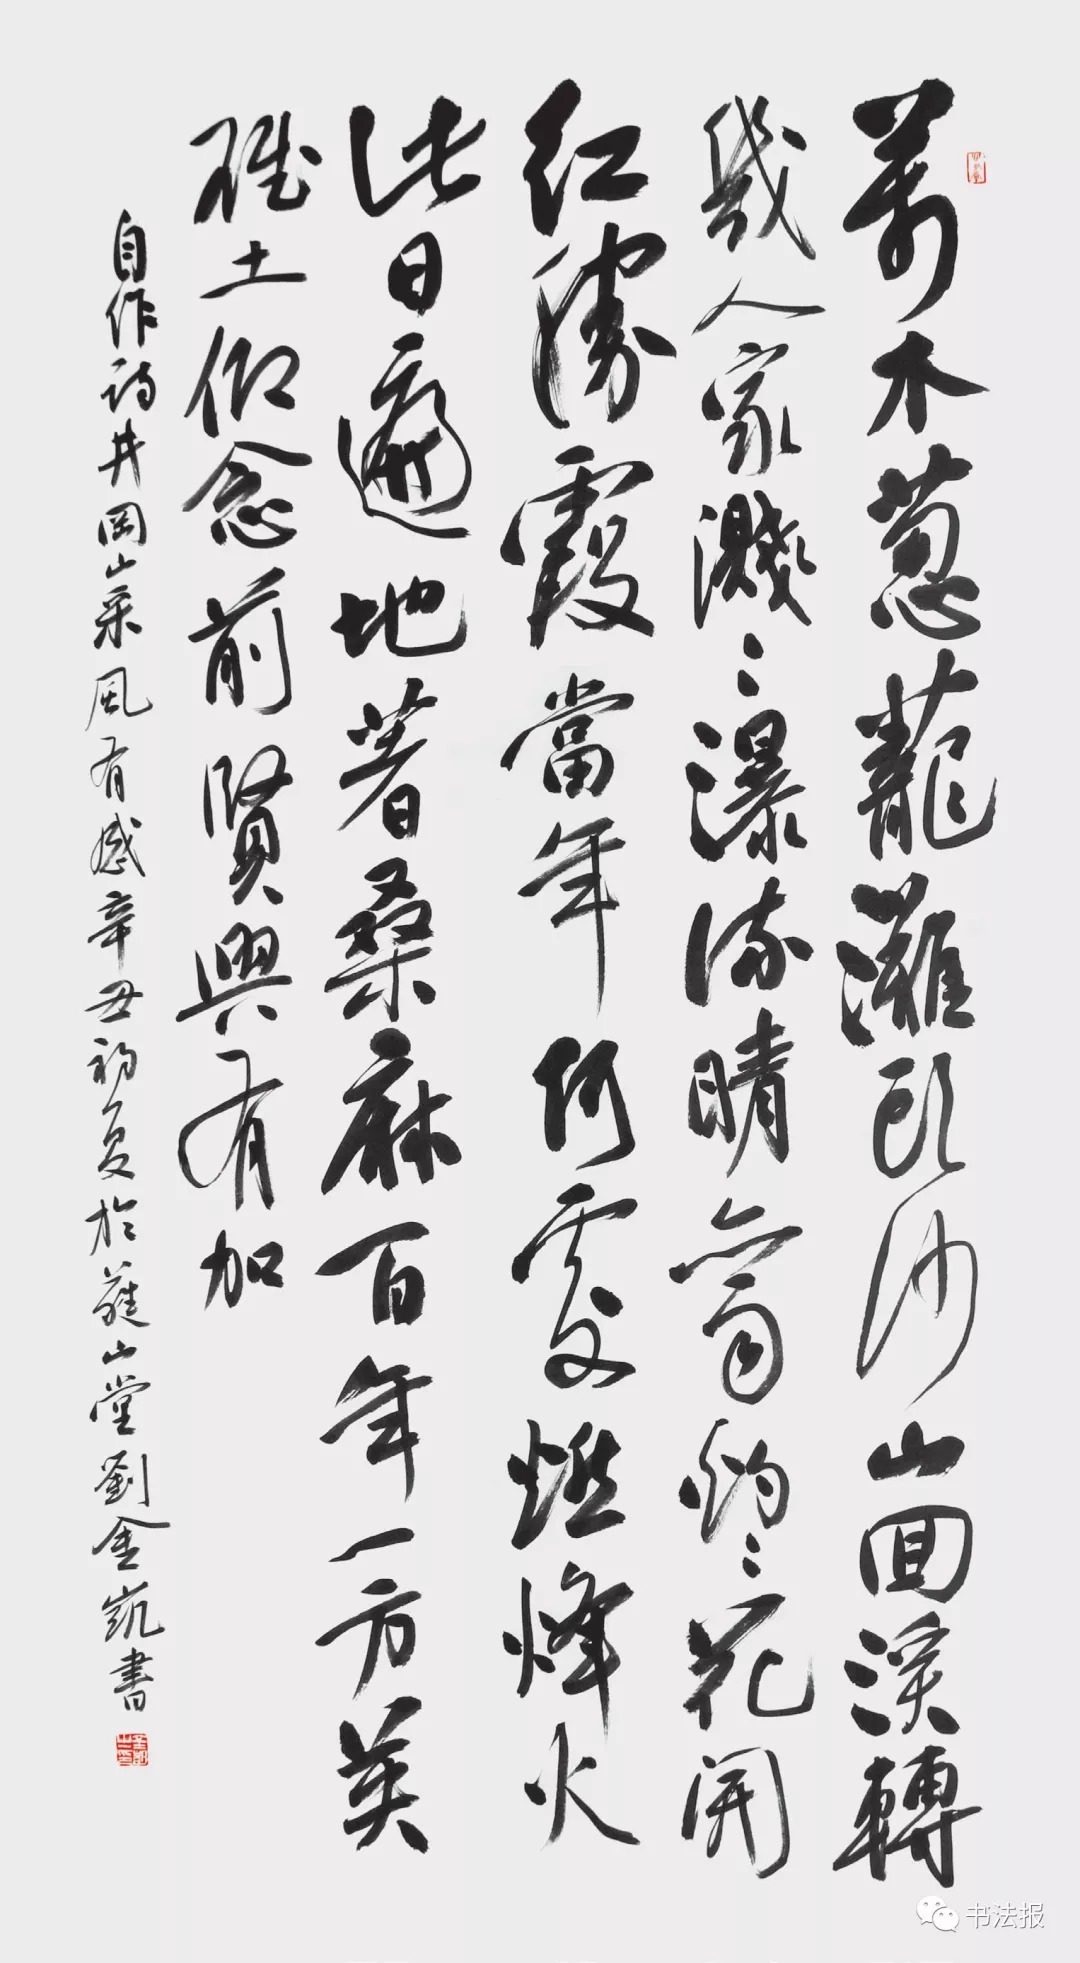 萬木葱蘢灘頭沙山回溪轉
幾人家濺〻瀑流晴亦雨灼〻花開
紅勝霞當年何處燃烽火
此日遍地著桑麻百年一方英
雄土仰念前賢興有加
自作詩井岡山采風有感辛丑初夏於山堂劉金凱書
书法报